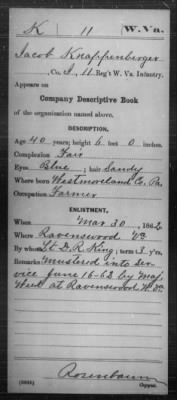 K 11 W.Va.
Jacob Knappenberger
, Co. I, 11 Reg't W. Va. Infantry.
Appears on
Company Descriptive Book
of the organization named above.
DESCRIPTION.
Age 40 years; height 6 feet 0 inches.
Complexion Fair
Eyes Blue ; hair Sandy
Where born Westmoreland Co. Pa.
Occupation Farmer
ENLISTMENT.
When Mar 30, 1862.
Where Ravenswood Va
By whom Lt D. R. King; term 3 y'rs.
Remarks mustered into ser-
vice June 16-62 by Maj.
at Ravenswood W. Va.
Rosenbaum
Copyist.